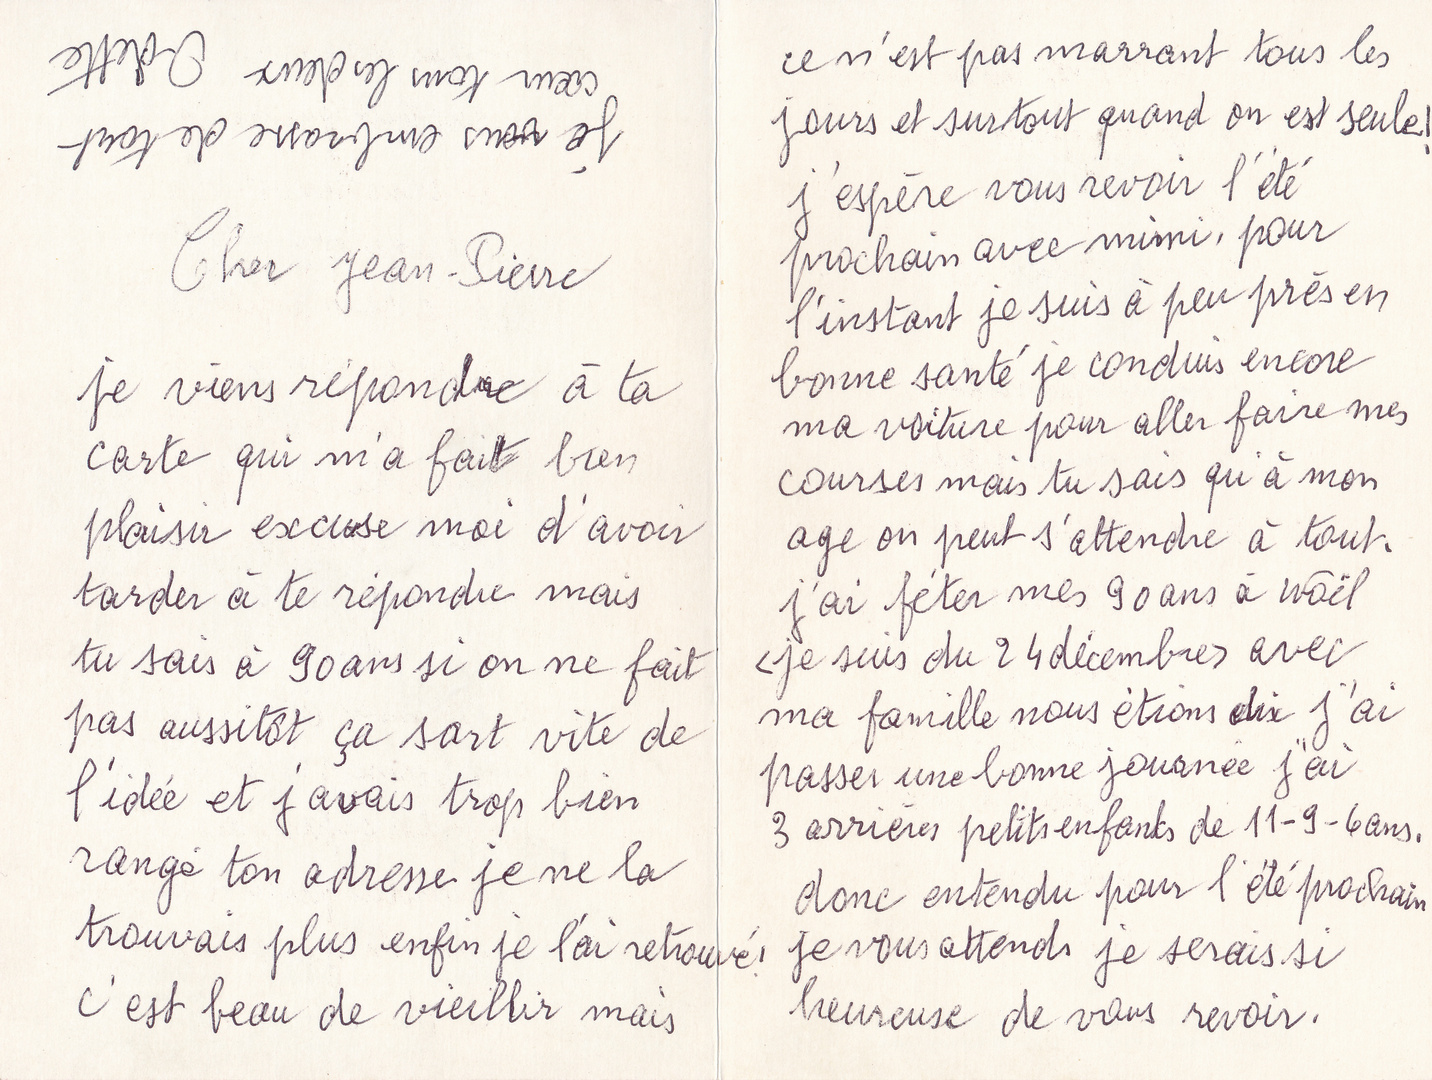 Cher Jean-Pierre
je viens répondre à ta
carte qui m'a fait bien
plaisir excuse moi d'avoir
tarder à te répondre mais
tu sais à 90 ans si on ne fait
pas aussitôt ça sort vite de
l'idée et j'avais trop bien
rangé ton adresse je ne la
trouvais plus enfin je l'ai retrouvé!
c'est beau de vieillir mais
ce n'est pas marrant tous les
jours et surtout quand on est seule!
j'espère vous revoir l'été
prochain avec mimi. pour
l'instant je suis à peu près en
bonne santé je conduis encore
ma voiture pour aller faire mes
courses mais tu sais qu'à mon
age on peut s'attendre à tout.
j'ai féter mes 90 ans à noël
<je suis du 24 décembre> avec
ma famille nous étions dix j'ai
passer une bonne journée j'ai
3 arrières petits enfants de 11-9-6 ans.
donc entendu pour l'été prochain
je vous attends je serais si
heureuse de vous revoir.
je vous embrasse de tout
cœur tous les deux Odette